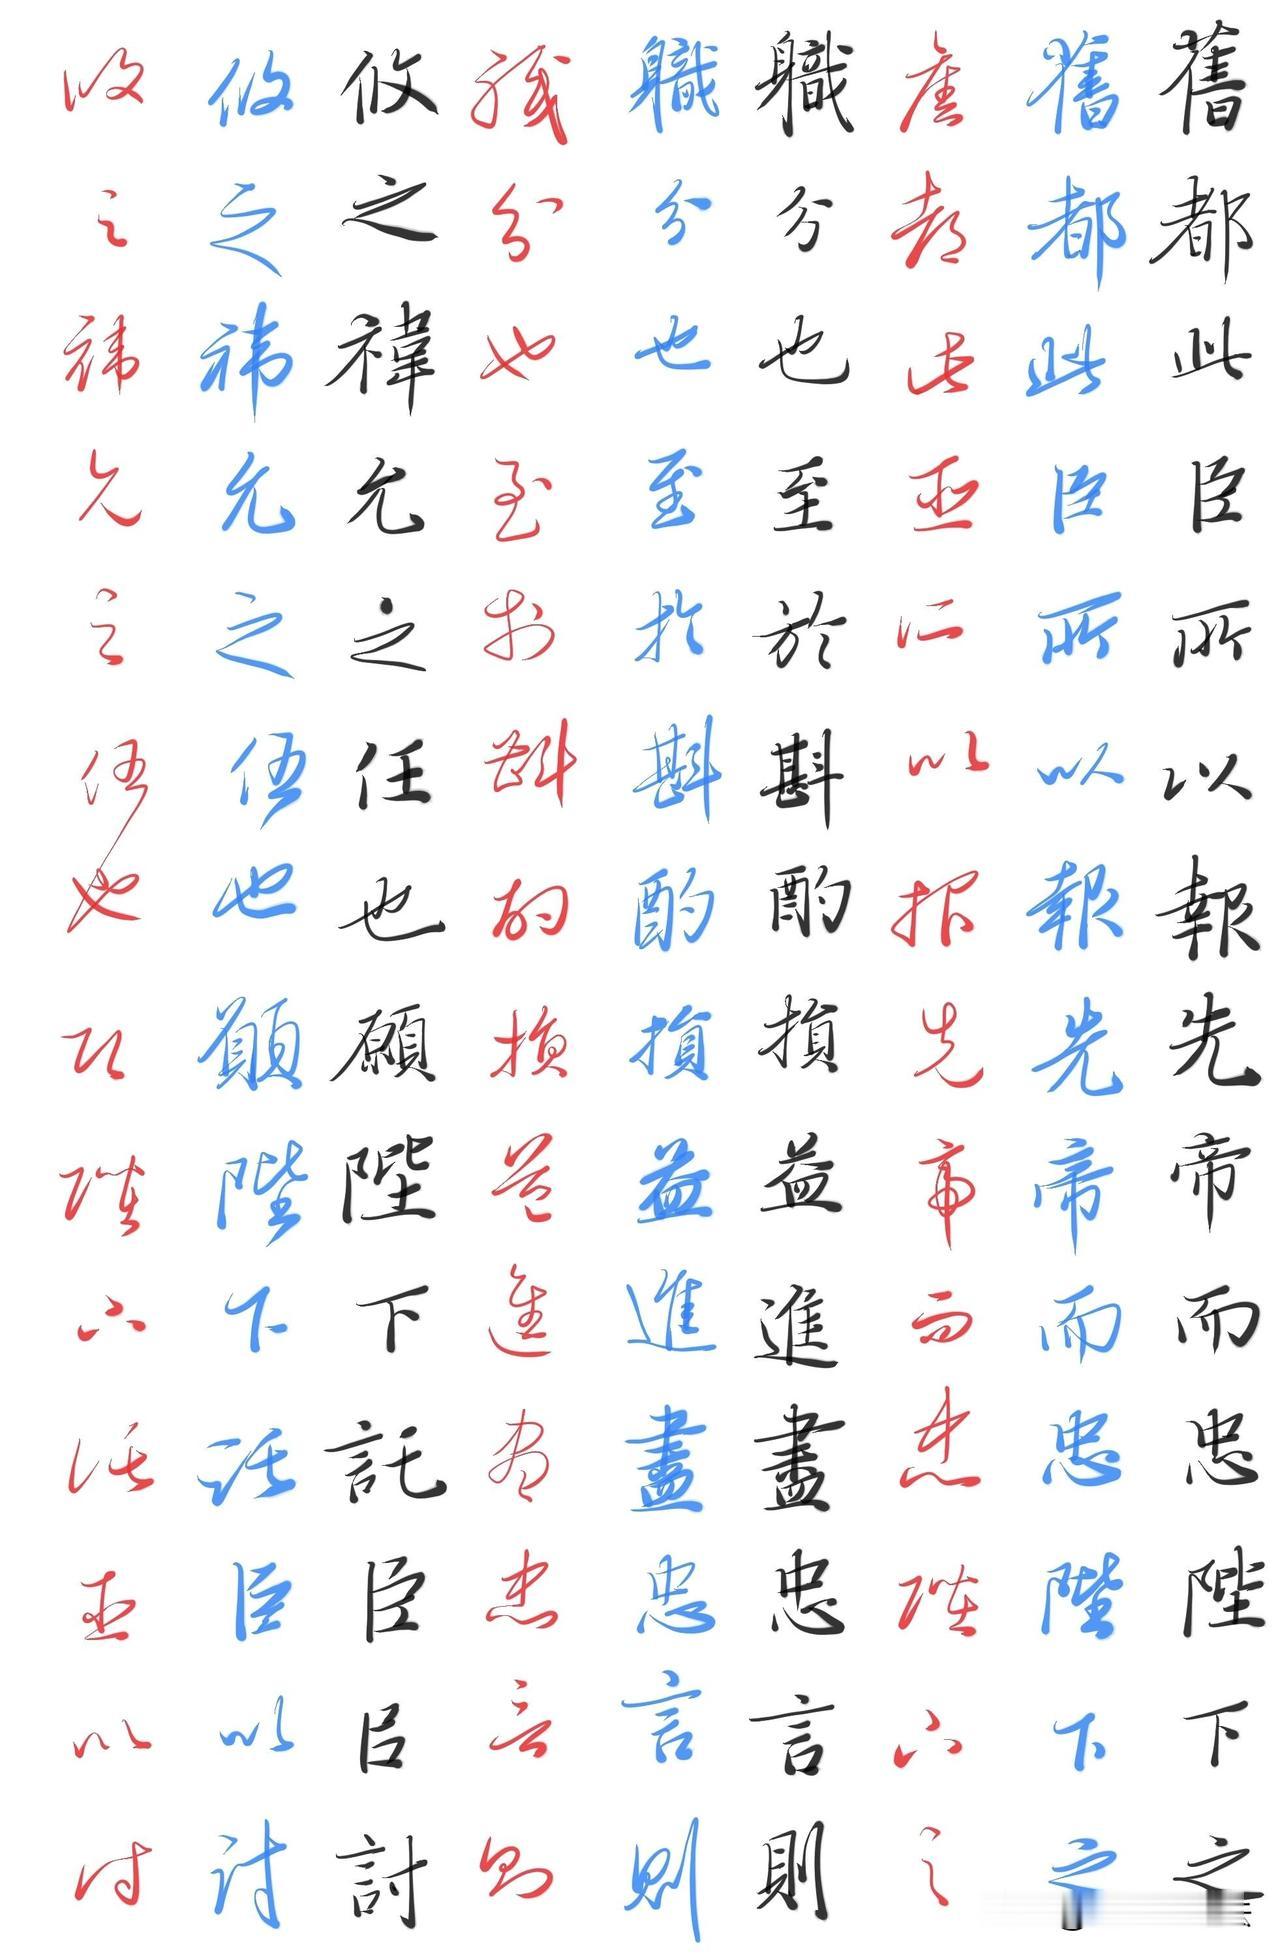 舊都此臣所以報先帝而忠陛下之
舊都此臣所以報先帝而忠陛下之
舊都此臣所以報先帝而忠陛下之
職分也至於斟酌損益進盡忠言則
職分也至於斟酌損益進盡忠言則
職分也至於斟酌損益進盡忠言則
攸之禕允之任也願陛下託臣㠯討
攸之禕允之任也願陛下託臣以討
攸之禕允之任也願陛下託臣以討